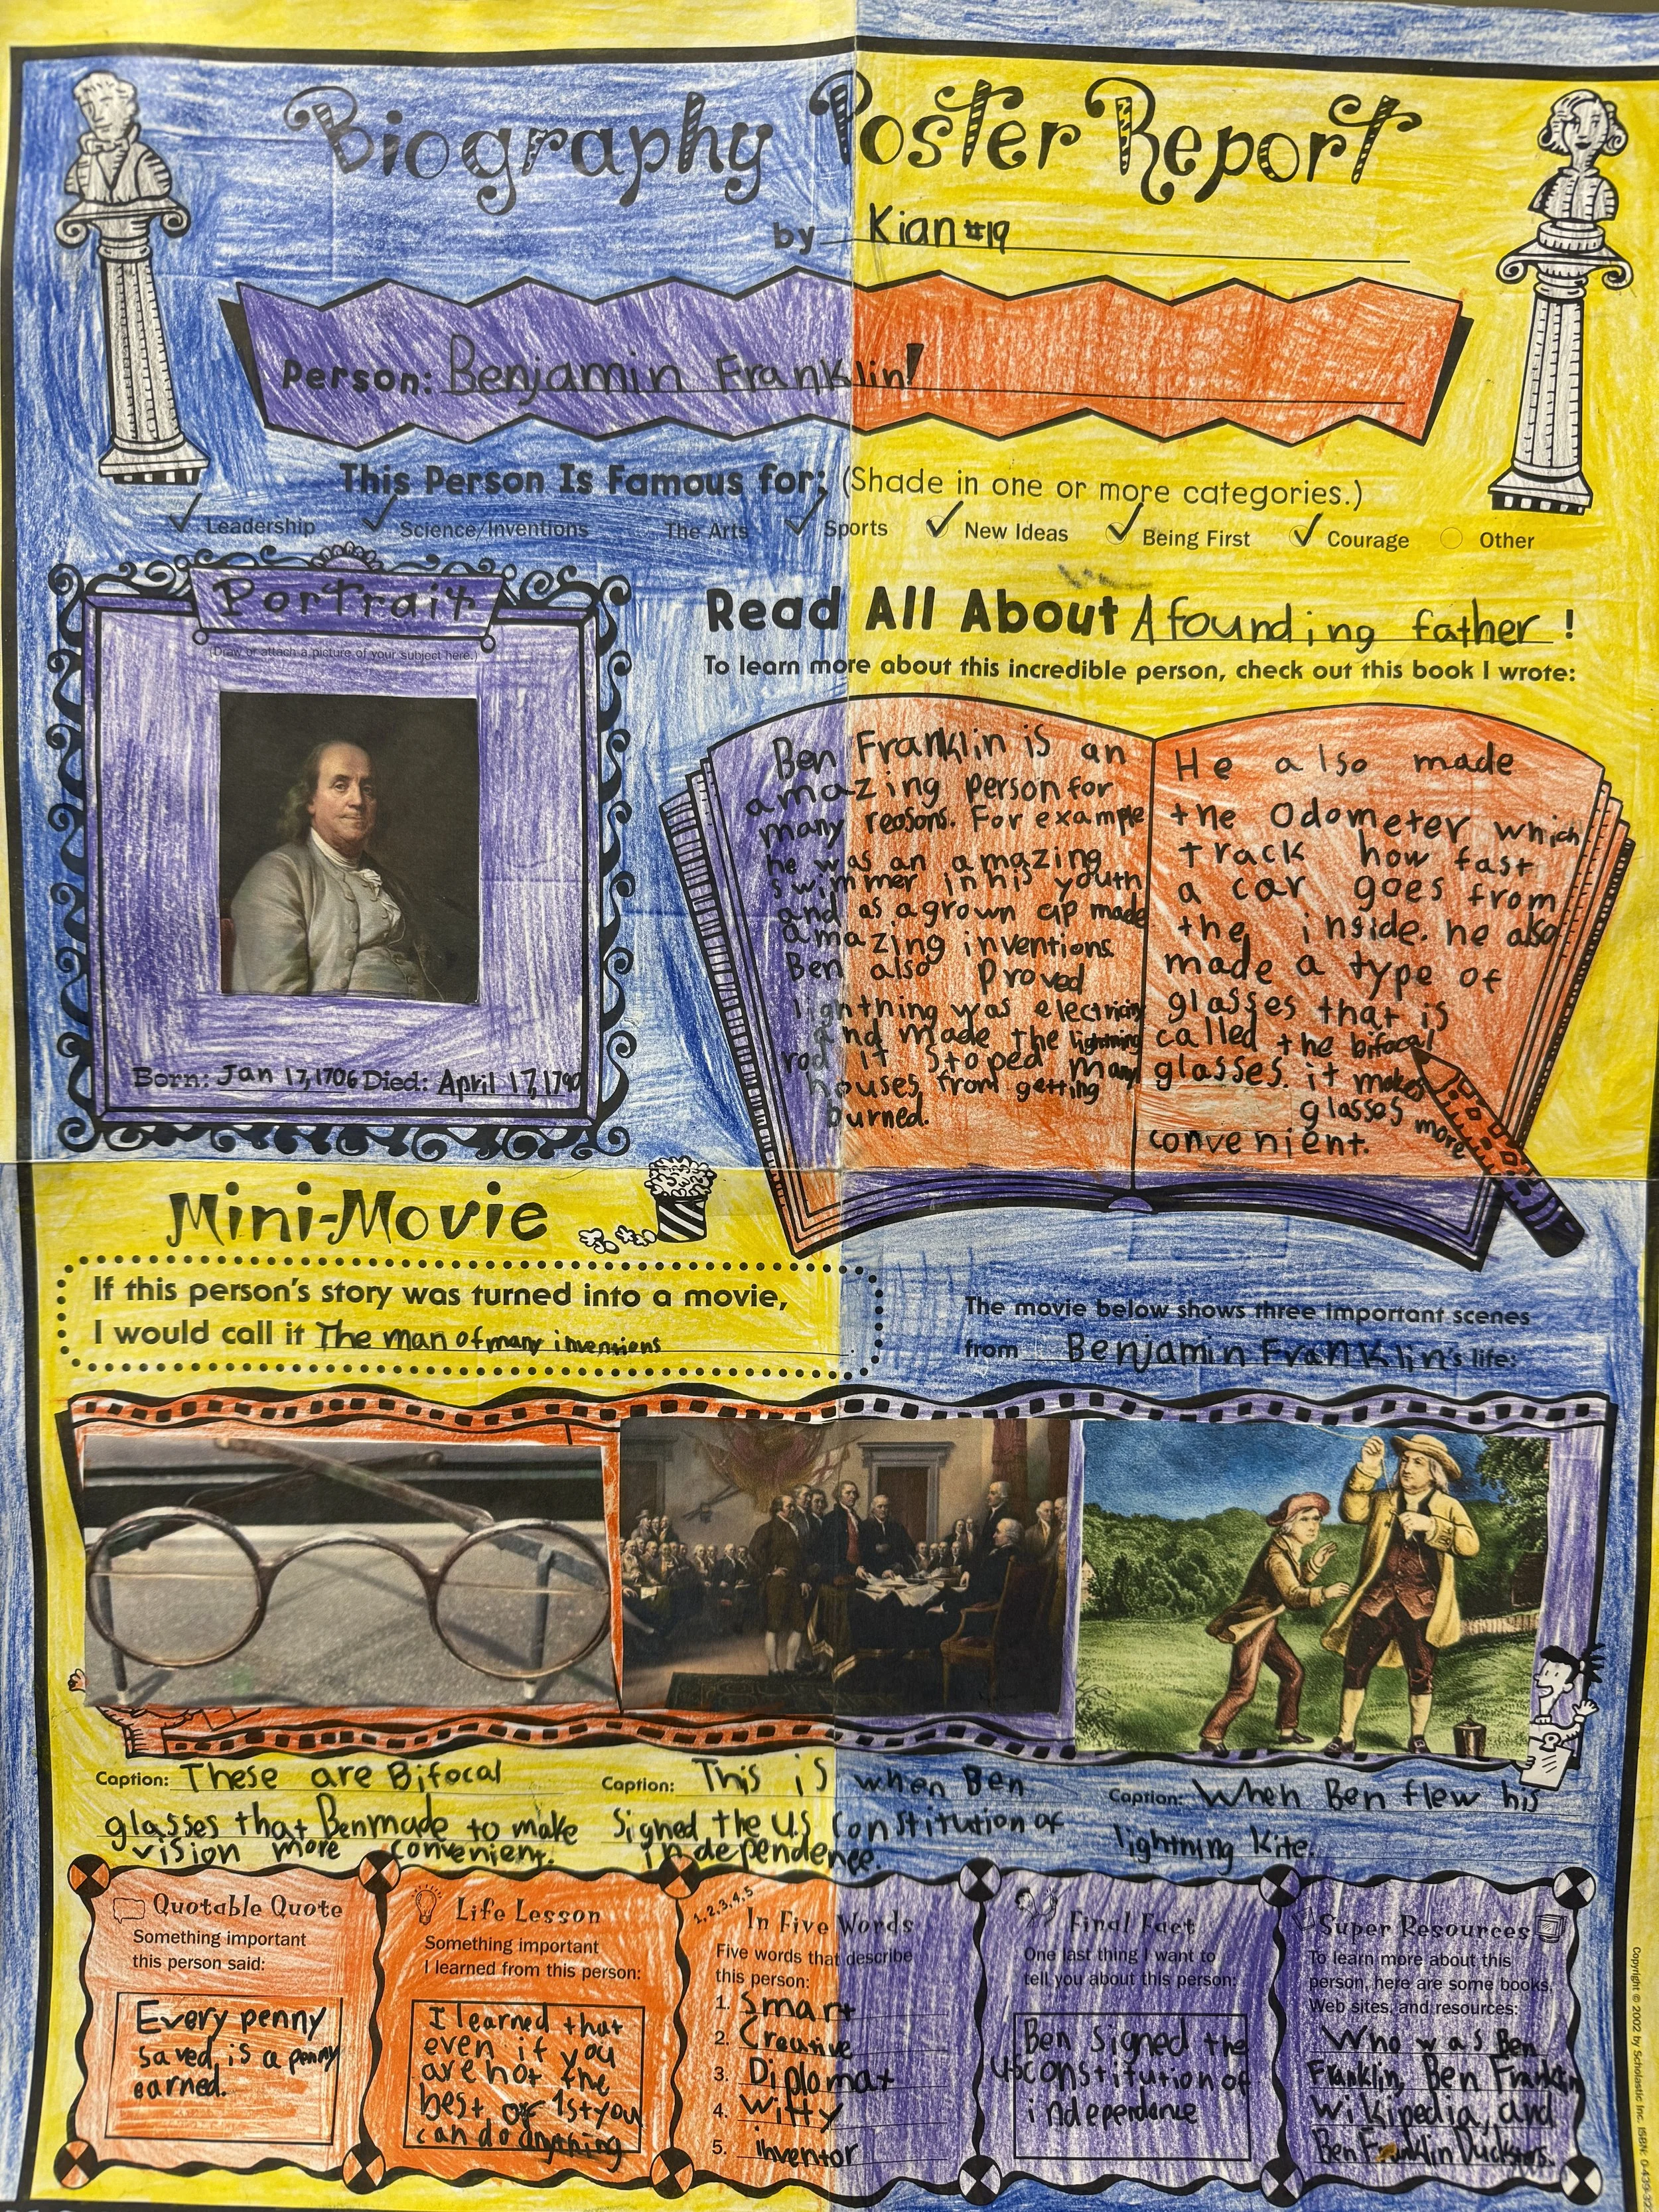 Biography Poster Report
by Kian #19
Person: Benjamin Franklin!
This Person Is Famous for: (Shade in one or more categories.)
Leadership Science/Inventions The Arts Sports New Ideas Being First Courage Other
Portrait
(Draw or attach a picture of your subject here.)
Born: Jan 17, 1706 Died: April 17, 1790
Read All About A founding father !
To learn more about this incredible person, check out this book I wrote:
Ben Franklin is an
amazing person for
many reasons. For example
he was an amazing
swimmer in his youth
and as a grown up made
amazing inventions
Ben also Proved
lignthing was electricity
and made the lightning
rod it stoped many
houses from getting
burned.
He also made
the Odometer which
track how fast
a car goes from
the inside. he also
made a type of
glasses that is
called the bifocal
glasses. it makes
glasses more
convenient.
Mini-Movie
If this person's story was turned into a movie,
I would call it The man of many inventions.
The movie below shows three important scenes
from Benjamin Franklin's life:
Caption: These are Bifocal
glasses that Ben made to make
vision more convenient.
Caption: This is when Ben
Signed the U.S Constitution of
independence.
Caption: When Ben flew his
lightning kite.
Quotable Quote
Something important
this person said:
Every penny
saved, is a penny
earned.
Life Lesson
Something important
I learned from this person:
I learned that
even if you
are not the
best or 1st you
can do anything
1, 2, 3, 4, 5
In Five Words
Five words that describe
this person:
1. Smart
2. Creative
3. Diplomat
4. Witty
5. inventor
Final Fact
One last thing I want to
tell you about this person:
Ben signed the
US constitution of
independance
Super Resources
To learn more about this
person, here are some books,
Web sites, and resources:
Who was Ben
Franklin, Ben Franklin
Wikipedia, and
Ben Franklin Ducksters.
Copyright © 2002 by Scholastic Inc. ISBN: 0-439-